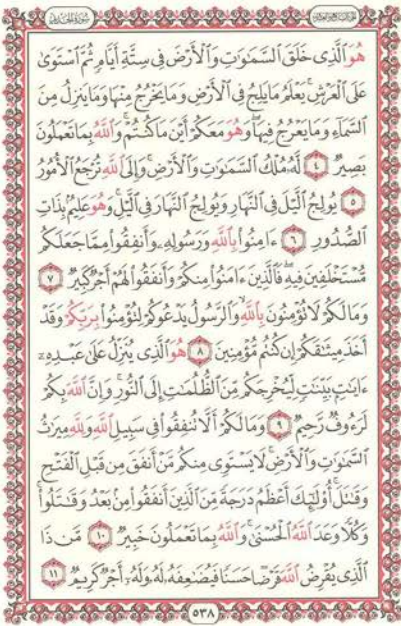 سُورَةُ الْحَدِيدِ
هُوَ ٱلَّذِى خَلَقَ ٱلسَّمَٰوَٰتِ وَٱلْأَرْضَ فِى سِتَّةِ أَيَّامٍ ثُمَّ ٱسْتَوَىٰ
عَلَى ٱلْعَرْشِ ۚ يَعْلَمُ مَا يَلِجُ فِى ٱلْأَرْضِ وَمَا يَخْرُجُ مِنْهَا وَمَا يَنزِلُ مِنَ
ٱلسَّمَآءِ وَمَا يَعْرُجُ فِيهَا ۖ وَهُوَ مَعَكُمْ أَيْنَ مَا كُنتُمْ ۚ وَٱللَّهُ بِمَا تَعْمَلُونَ
بَصِيرٌ ٤ لَّهُۥ مُلْكُ ٱلسَّمَٰوَٰتِ وَٱلْأَرْضِ ۚ وَإِلَى ٱللَّهِ تُرْجَعُ ٱلْأُمُورُ
٥ يُولِجُ ٱلَّيْلَ فِى ٱلنَّهَارِ وَيُولِجُ ٱلنَّهَارَ فِى ٱلَّيْلِ ۚ وَهُوَ عَلِيمٌۢ بِذَاتِ
ٱلصُّدُورِ ٦ ءَامِنُوا۟ بِٱللَّهِ وَرَسُولِهِۦ وَأَنفِقُوا۟ مِمَّا جَعَلَكُم
مُّسْتَخْلَفِينَ فِيهِ ۖ فَٱلَّذِينَ ءَامَنُوا۟ مِنكُمْ وَأَنفَقُوا۟ لَهُمْ أَجْرٌ كَبِيرٌ ٧
وَمَا لَكُمْ لَا تُؤْمِنُونَ بِٱللَّهِ ۙ وَٱلرَّسُولُ يَدْعُوكُمْ لِتُؤْمِنُوا۟ بِرَبِّكُمْ وَقَدْ
أَخَذَ مِيثَٰقَكُمْ إِن كُنتُم مُّؤْمِنِينَ ٨ هُوَ ٱلَّذِى يُنَزِّلُ عَلَىٰ عَبْدِهِۦٓ
ءَايَٰتٍۭ بَيِّنَٰتٍ لِّيُخْرِجَكُم مِّنَ ٱلظُّلُمَٰتِ إِلَى ٱلنُّورِ ۚ وَإِنَّ ٱللَّهَ بِكُمْ
لَرَءُوفٌ رَّحِيمٌ ٩ وَمَا لَكُمْ أَلَّا تُنفِقُوا۟ فِى سَبِيلِ ٱللَّهِ وَلِلَّهِ مِيرَٰثُ
ٱلسَّمَٰوَٰتِ وَٱلْأَرْضِ ۚ لَا يَسْتَوِى مِنكُم مَّنْ أَنفَقَ مِن قَبْلِ ٱلْفَتْحِ
وَقَٰتَلَ ۚ أُو۟لَٰٓئِكَ أَعْظَمُ دَرَجَةً مِّنَ ٱلَّذِينَ أَنفَقُوا۟ مِنۢ بَعْدُ وَقَٰتَلُوا۟ ۚ
وَكُلًّا وَعَدَ ٱللَّهُ ٱلْحُسْنَىٰ ۚ وَٱللَّهُ بِمَا تَعْمَلُونَ خَبِيرٌ ١٠ مَّن ذَا
ٱلَّذِى يُقْرِضُ ٱللَّهَ قَرْضًا حَسَنًا فَيُضَٰعِفَهُۥ لَهُۥ وَلَهُۥٓ أَجْرٌ كَرِيمٌ ١١
٥٣٨